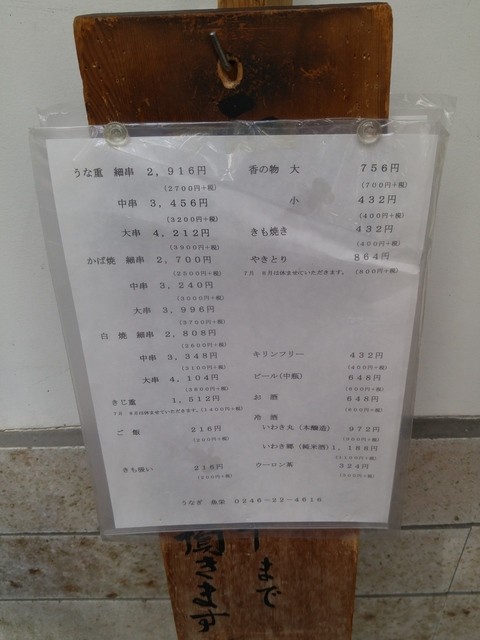 うな重 細串 2,916円
(2700円+税)
中串 3,456円
(3200円+税)
大串 4,212円
(3900円+税)
かば焼 細串 2,700円
(2500円+税)
中串 3,240円
(3000円+税)
大串 3,996円
(3700円+税)
白焼 細串 2,808円
(2600円+税)
中串 3,348円
(3100円+税)
大串 4,104円
(3800円+税)
きじ重 1,512円
7月 8月は休ませていただきます。(1400円+税)
ご飯 216円
(200円+税)
きも吸い 216円
(200円+税)
香の物 大 756円
(700円+税)
小 432円
(400円+税)
きも焼き 432円
(400円+税)
やきとり 864円
7月 8月は休ませていただきます。 (800円+税)
キリンフリー 432円
(400円+税)
ビール(中瓶) 648円
(600円+税)
お酒 648円
(600円+税)
冷酒
いわき丸(本醸造) 972円
(900円+税)
いわき郷(純米酒)1,188円
(1100円+税)
ウーロン茶 324円
(300円+税)
うなぎ 魚栄 0246-22-4616
まで
頂きます